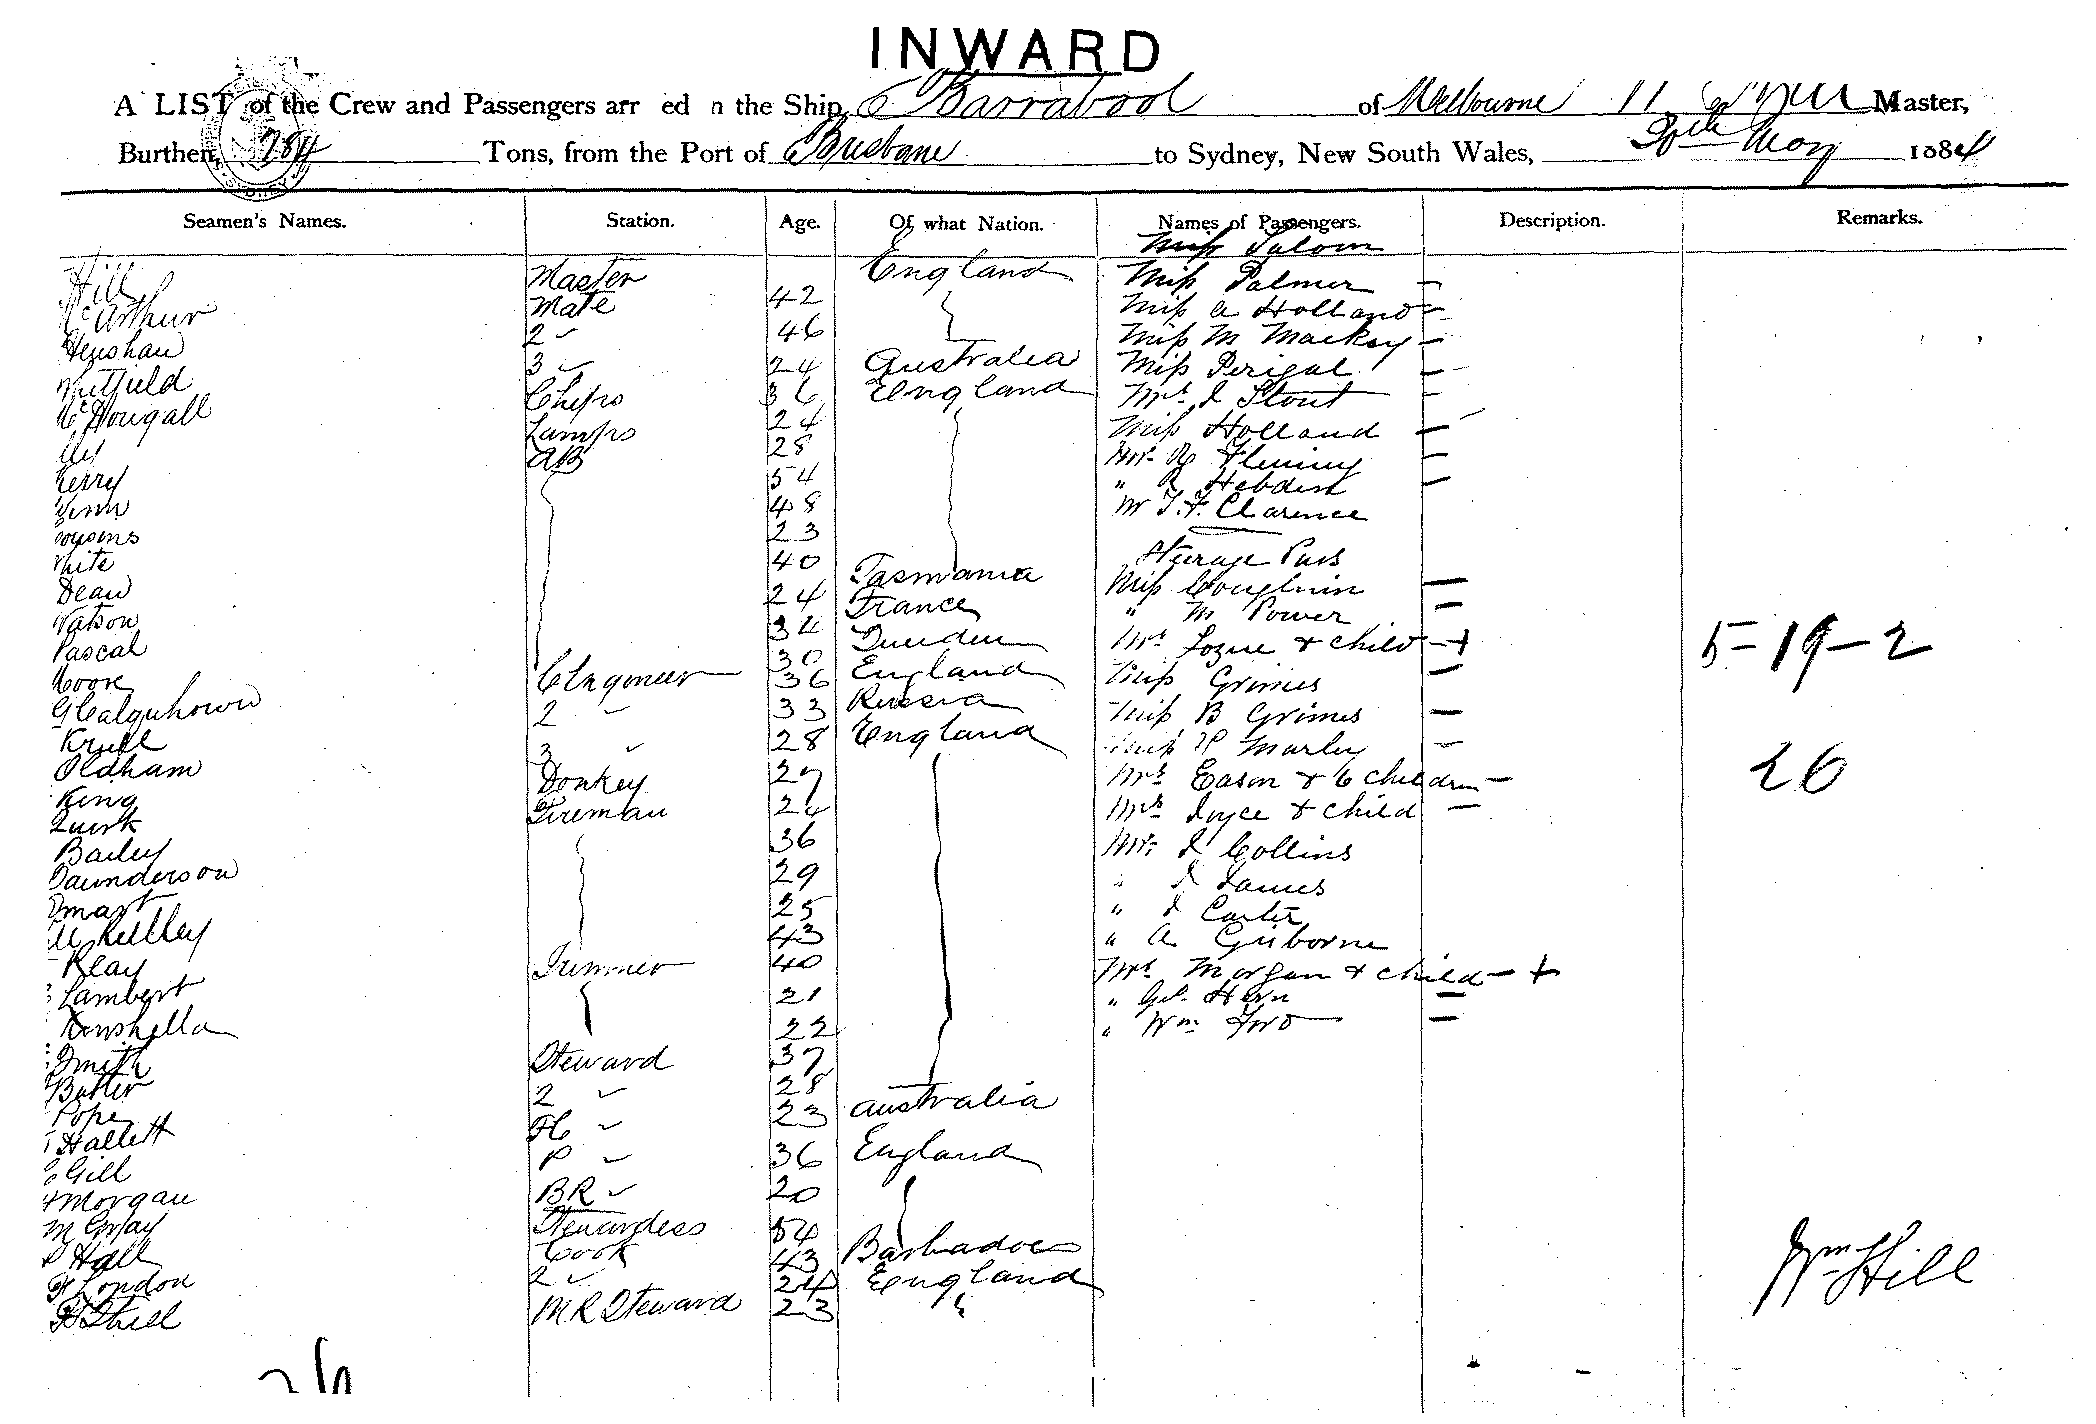 INWARD
A LIST of the Crew and Passengers arr ed n the Ship Barrabool of Melbourne Master,
Burthen, 784 Tons, from the Port of Brisbane to Sydney, New South Wales, 20th May 1884
Seamen's Names. Station. Age. Of what Nation. Names of Passengers. Description. Remarks.
Miss Saloon
Hill Master 42 England Miss Palmer –
McArthur Mate 46 Miss A Holland –
Henshaw 2 " 24 Australia Miss M Mackay –
3 " 36 England Miss Perigal –
McDougall Chips 24 Mrs J Stout –
Lamps 28 Miss Holland –
Kerry AB 54 Mr R Fleming –
Venn 48 " R Hebden –
23 Mr T. F. Clarence
White 40 Tasmania Steerage Pass
Dean 24 France Miss Coughlin –
Watson 34 Sweden " M Power –
Pascal 30 England Mrs Logue & child – +
Moore C Engineer 36 Russia Miss Grimes –
G Colquhoun 2 " 33 England Miss B Grimes –
Krull 3 " 28 Miss Marley –
Oldham Donkey 27 Mrs Eason & 6 children –
King Fireman 24 Mrs Joyce & child –
Quirk 36 Mr J Collins
Bailey 29 " J James
Saunderson 25 " J Carter
Smart 43 " A
McKelley Trimmer 40 Mrs Morgan & child – +
Reay 21 " Geo. Hern –
Lambert 22 " Wm Two –
Kinshella 37
Smith Steward 28
Butler 2 " 23 Australia
Pope
Hallett P " 36 England
Gill BR " 20
Morgan Stewardess 54
M McKay Cook 43 Barbadoes
Hall 2 " 24 England
London MR Steward 23 "
5-19-2
26
Wm Hill